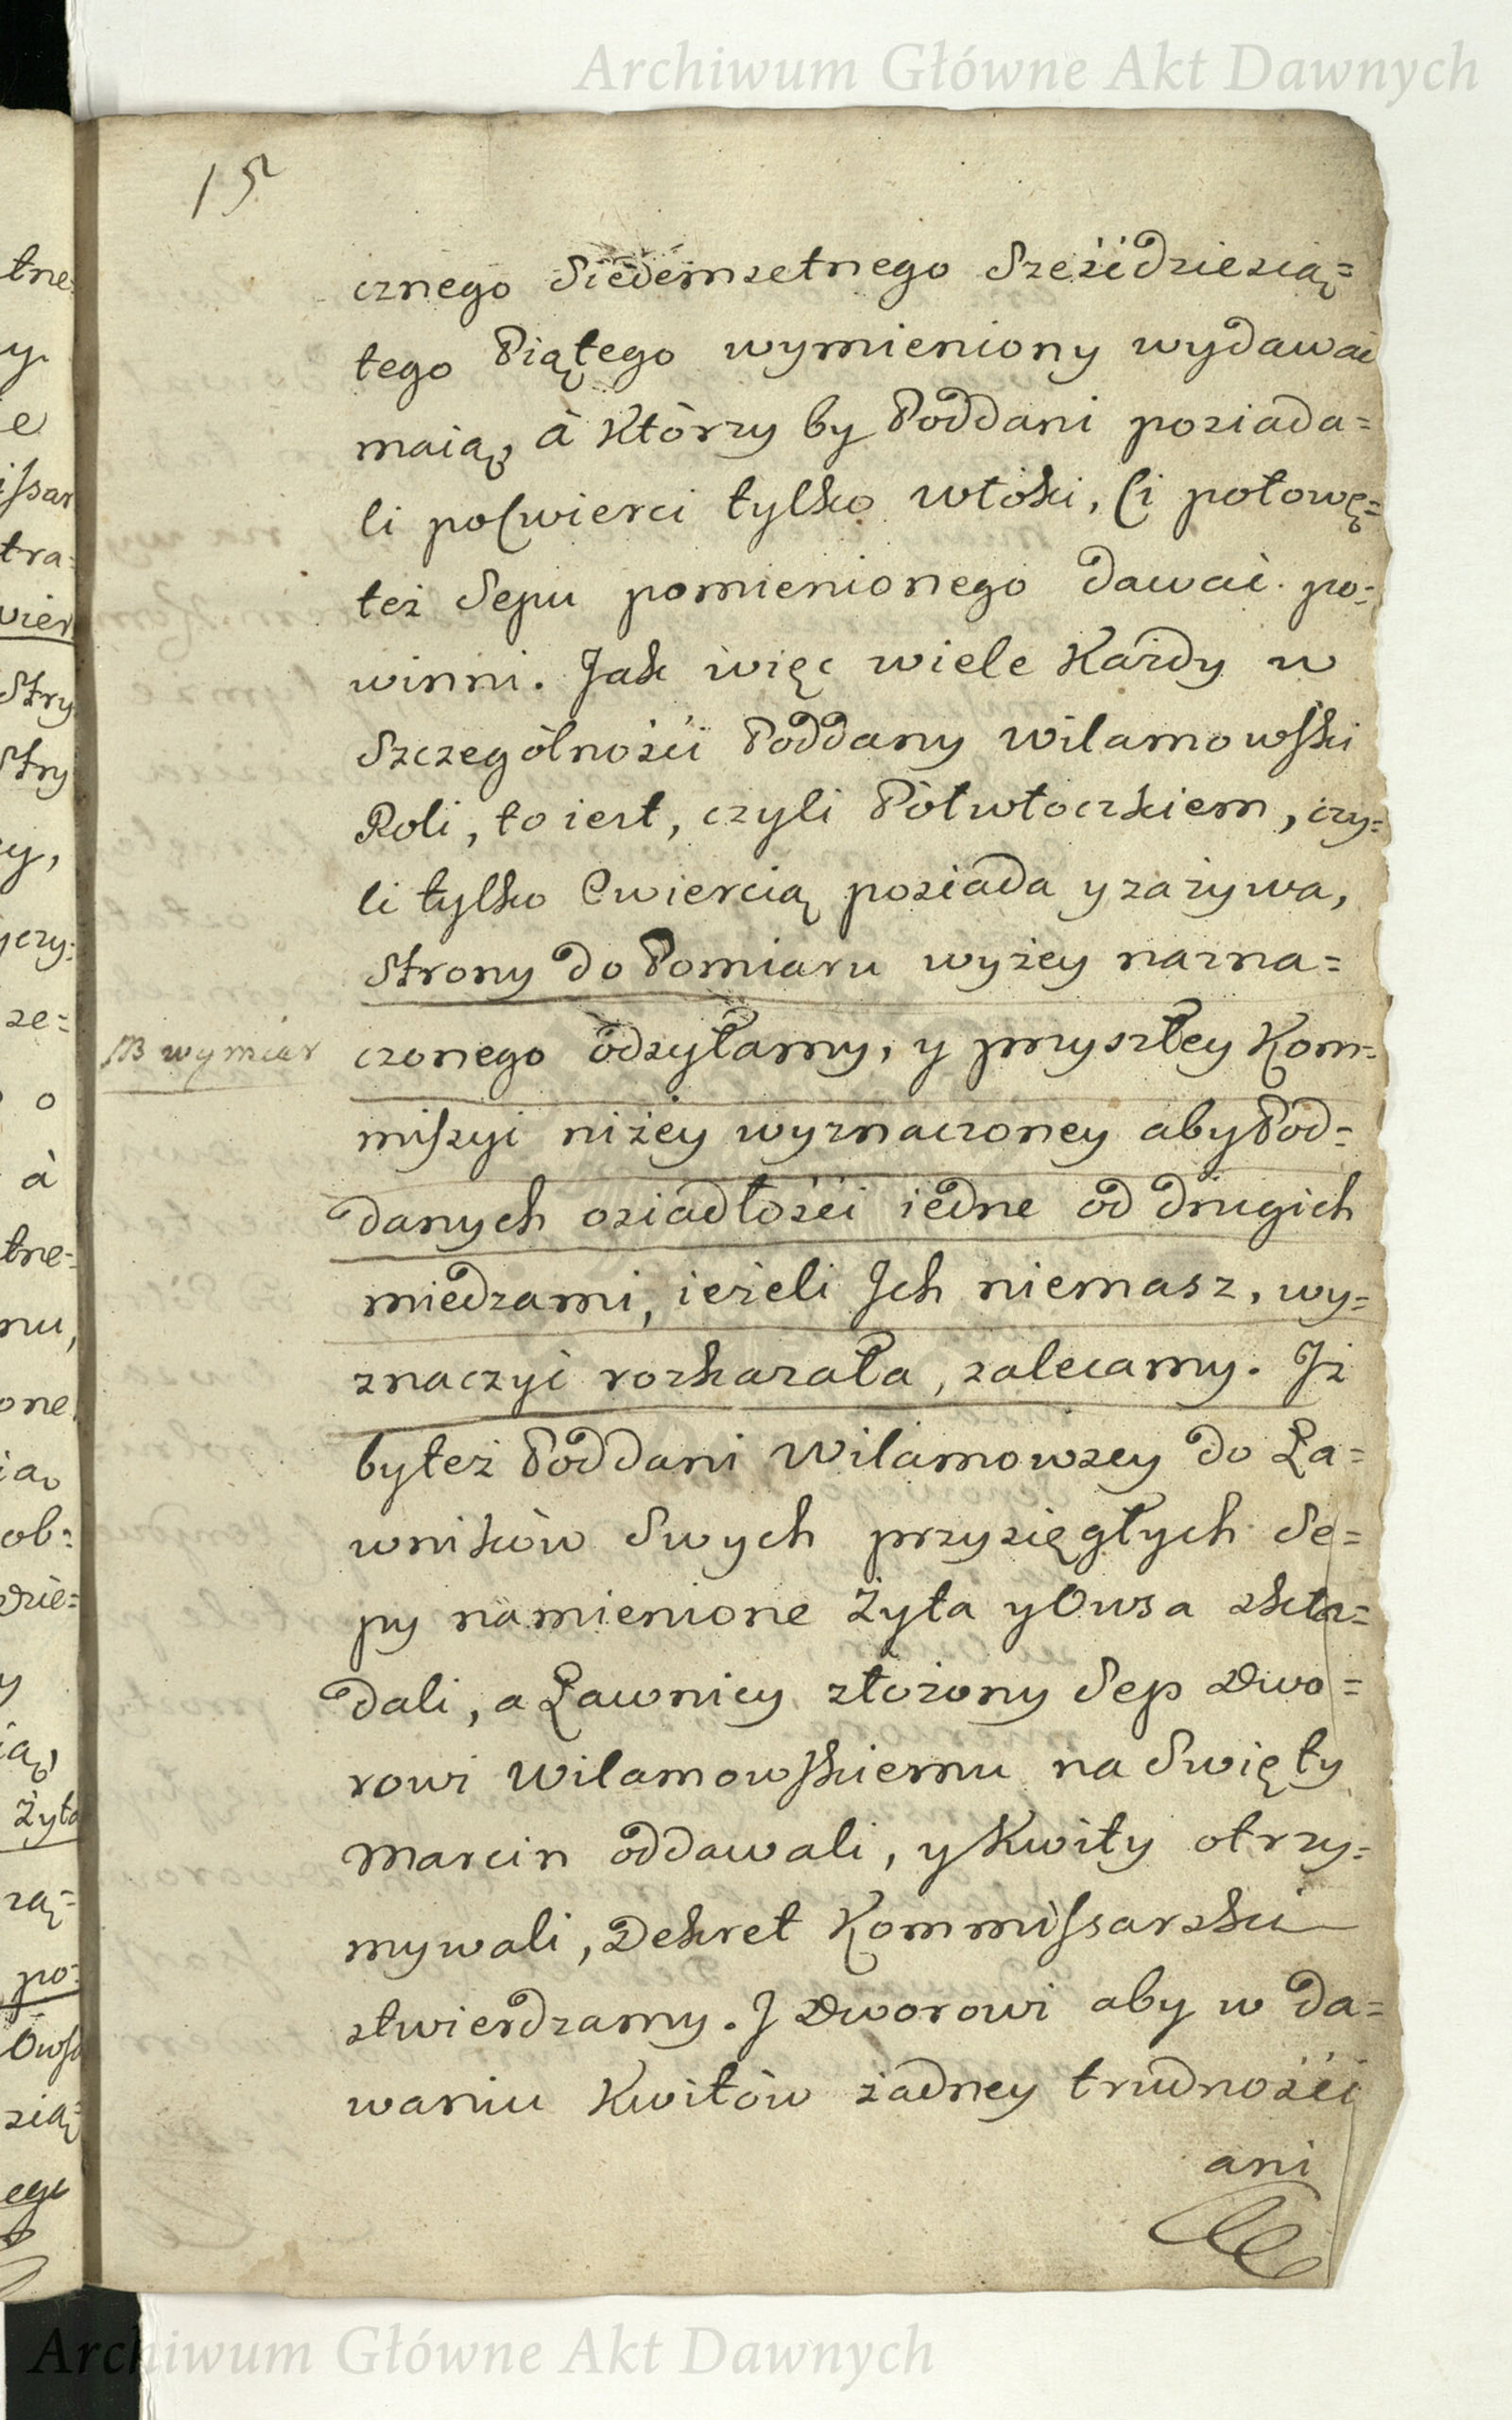 Archiwum Główne Akt Dawnych
15
cznego Siedemsetnego Sześćdziesią=
tego Piątego wymieniony wydawać
maią, à Którzy by Poddani posiada=
li poCwierci tylko włóki, Ci połowę=
też Sepu pomienionego dawać po=
winni. Jak więc wiele Każdy w
Szczególności Poddany Wilamowski
Roli, to iest, czyli Półwłoczkiem, czy=
li tylko Cwiercią posiada y zażywa,
Strony do Pomiaru wyżey nazna=
czonego odsyłamy, y przyszłey Kom=
NB wymiar
missyi niżey wyznaczoney aby Pod=
danych osiadłości iedne od drugich
miedzami, ieżeli Jch niemasz, wy=
znaczyć rozkazała, zalecamy. Jż
byteż Poddani Wilamowscy do Ła=
wników Swych przysięgłych Se=
py namienione Żyta y Owsa skła=
dali, a Ławnicy złożony Sep Dwo=
rowi Wilamowskiemu na Swięty
Marcin oddawali, y Kwity otrzy=
mywali, Dekret Kommissarski
stwierdzamy. J Dworowi aby w da=
waniu Kwitów żadney trudności
ani
Archiwum Główne Akt Dawnych